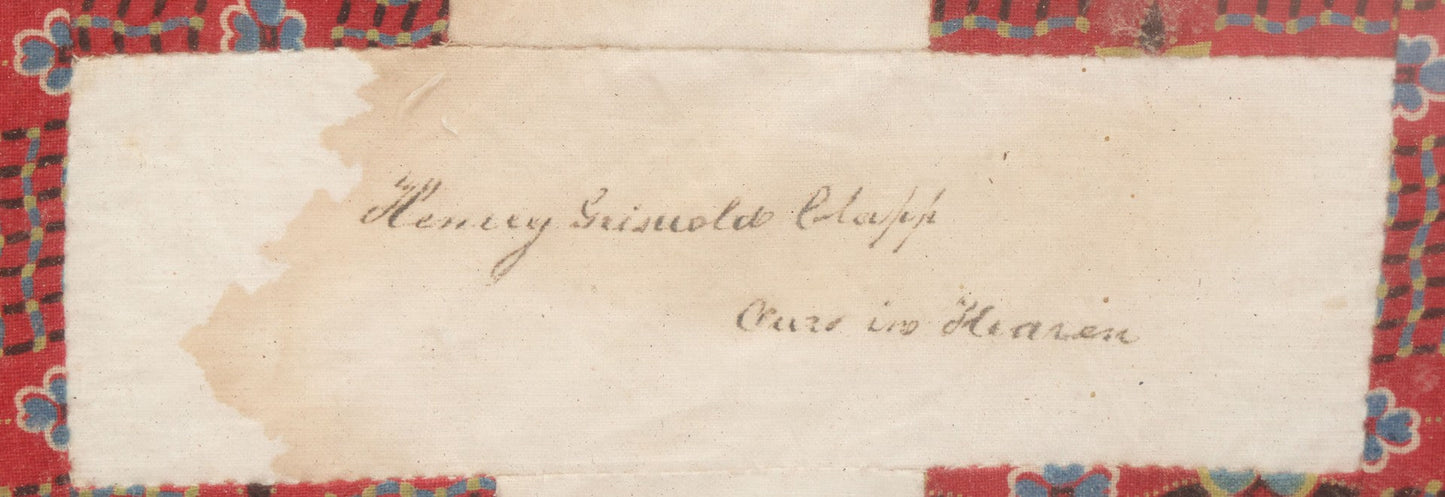 Henry Griswold Clapp
Ours in Heaven